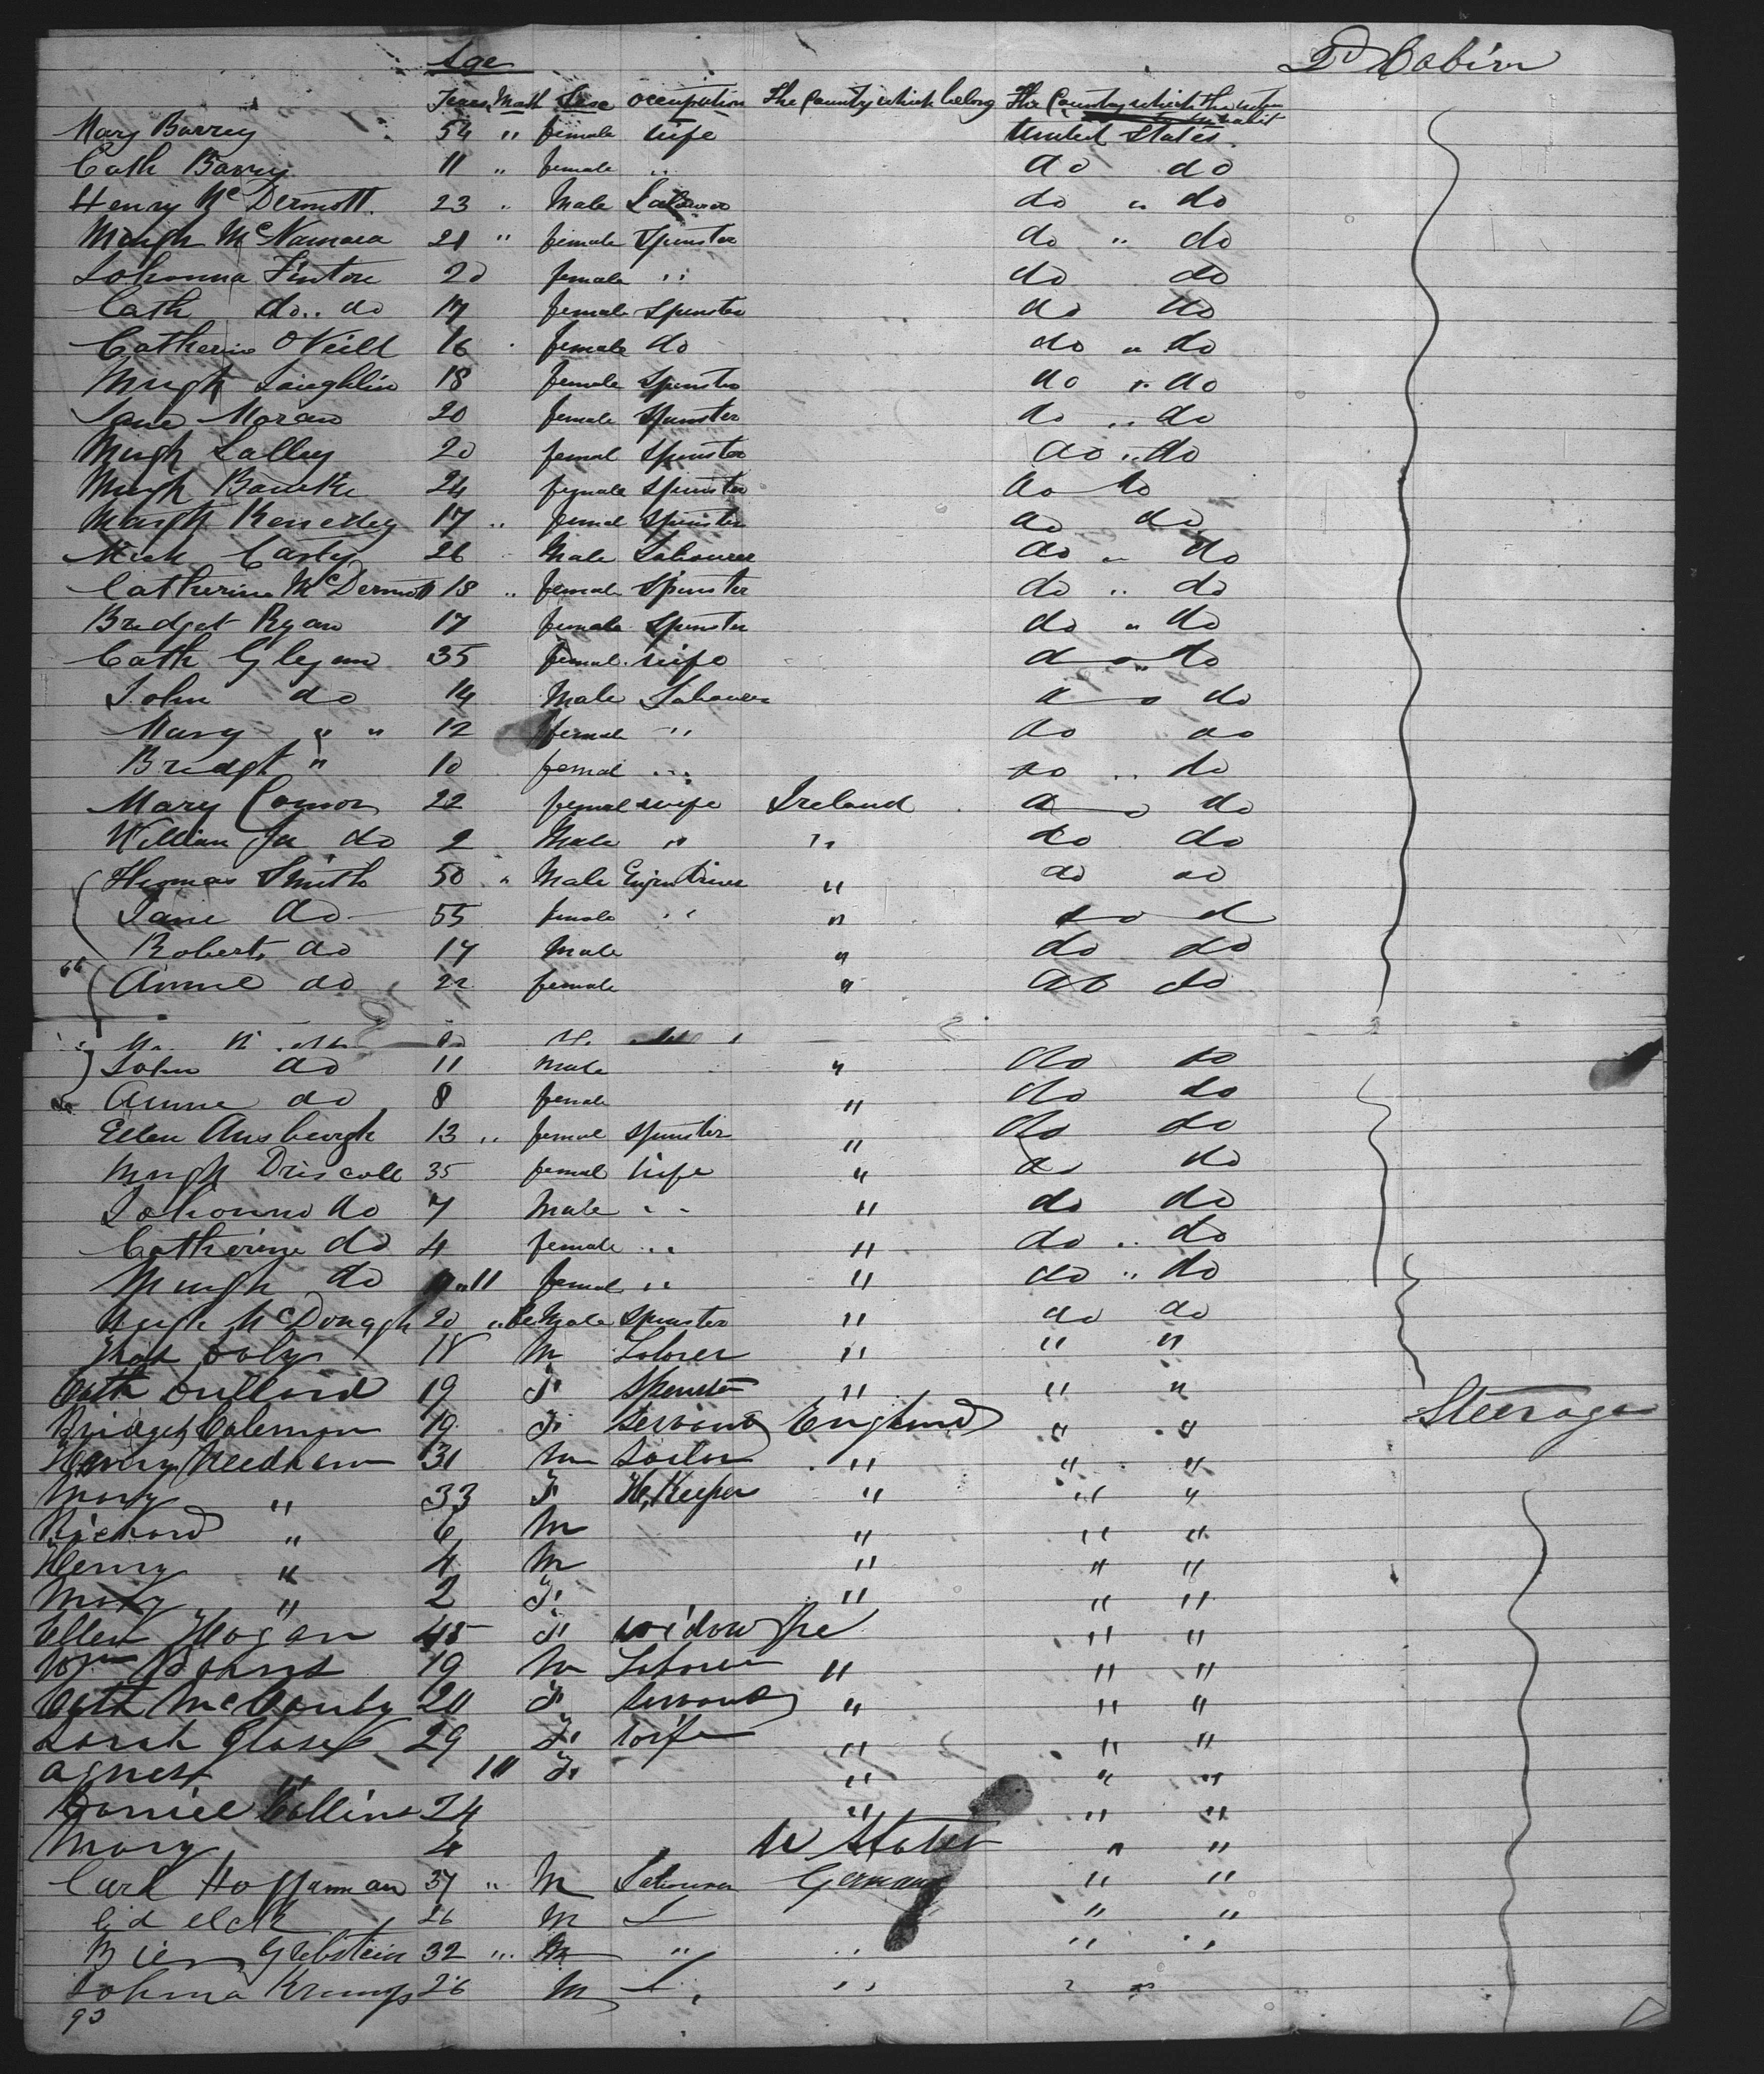 Age 2d Cabin
Years Mnth Sex occupation The County which belong The Country which they intend to inhabit
Mary Barrey 54 " female wife United States
Cath Barry 11 " female " do do
Henry McDermott 23 " Male Labourer do " do
Margh McNamara 21 " female Spinster do " do
Johanna Finton 20 female " do do
Cath do .. do 17 female Spinster do do
Catherine O'Neill 16 female do do " do
Margh Laughlin 18 female Spinster do " do
Jane Moran 20 female Spinster do .. do
Margh Lalley 20 femal Spinster do .. do
Margh Bourke 24 female Spinster do do
Margh Kennedy 17 .. femal Spinster do do
Mich Carty 26 Male Labourer do " do
Catherine McDermott 18 .. female Spinster do .. do
Bridget Ryan 17 female Spinster do " do
Cath Glynn 35 femal wife do do
John do 14 Male Labourer do do
Mary " " 12 female " do do
Bridgt " 10 femal ... do .. do
Mary Connor 22 femal wife Ireland do do
William Jn do 2 Male " " do do
Thomas Smith 50 " Male Engin Driver " do do
Jane do 55 female " " do d
Robert do 17 Male " do do
Annie do 22 female " do do
John do 11 Male " do do
Annie do 8 female " do do
Ellen Ansbergh 13 .. femal spinster " do do
Margh Driscoll 35 femal wife " do do
Johanna do 7 Male " " do do
Catherine do 4 female ... " do .. do
Margh do 11 femal " " do " do
McDonagh 20 feMale Spinster " do do
18 M Laborer " " "
Cath 19 F Spinster " " "
Bridget Coleman 19 F Servant England " " Steerage
Henry Needham 31 M Sailor " " "
Mary " 33 F H. Keeper " " "
Richard " 6 M " " "
Henry " 4 M " " "
Mary " 2 F " " "
Ellen Hogan 45 F widow Ire " "
Wm 19 M Laborer " " "
Cath McCarty 20 F Servant " " "
Sarah 29 F Wife " " "
Agnes " 10 F " " "
Daniel Collins 24 " " "
Mary 4 U States " "
Carl Hoffmann 37 " M Labourer Germany " "
26 M L " "
32 ... M " " " "
26 M L " " "
93